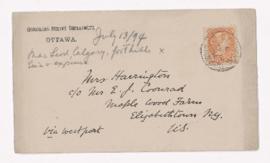 GEOLOGICAL SURVEY DEPARTMENT,
OTTAWA.
July 13/94
Calgary,
Mrs Harrington
c/o Mr E. J. Coonrad
Maple Wood Farm
Elizabethtown N.Y.
U.S.
Via Westport